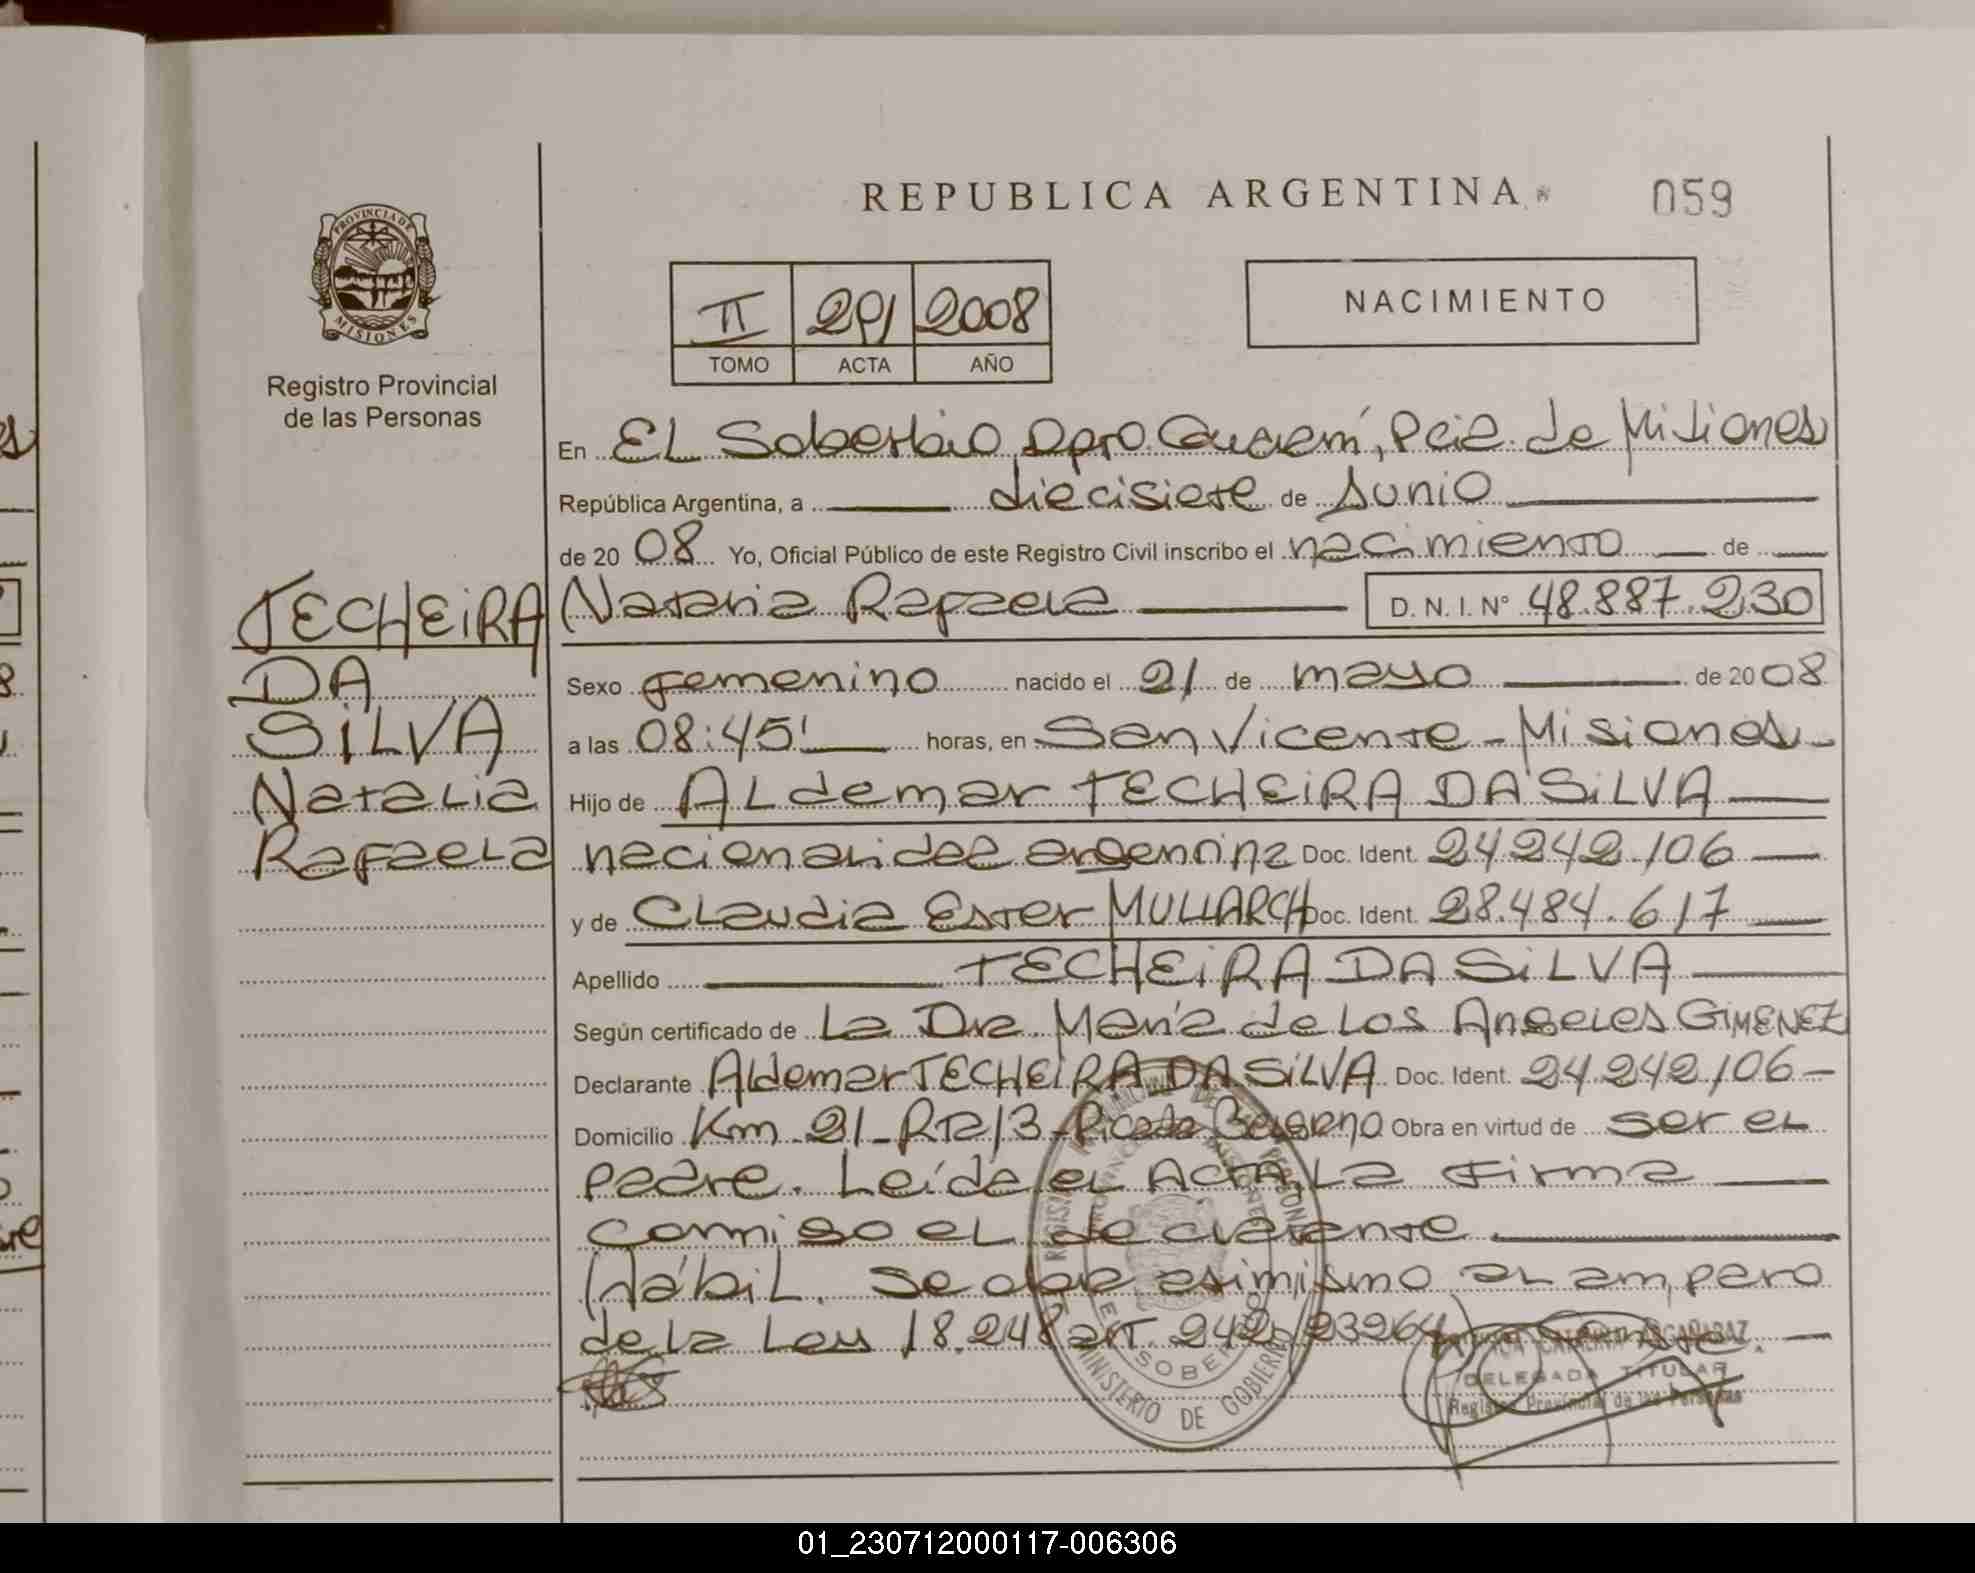 REPUBLICA ARGENTINA
059
PROVINCIA DE
MISIONES
Registro Provincial
de las Personas
II 291 2008
TOMO ACTA AÑO
NACIMIENTO
En EL Soberbio, Dpto. Guaraní, Pcia. de Misiones
República Argentina, a diecisiete de Junio
de 2008 Yo, Oficial Público de este Registro Civil inscribo el nacimiento de
TECHEIRA
DA
SILVA
Natalia
Rafaela
Natalia Rafaela D. N. I. N° 48.887.230
Sexo femenino nacido el 21 de mayo de 2008
a las 08:45' horas, en San Vicente - Misiones
Hijo de ALdemar TECHEIRA DA SILVA
nacionalidad argentina Doc. Ident. 24.242.106
y de CLaudia Ester MULLARCH Doc. Ident. 28.484.617
Apellido TECHEIRA DA SILVA
Según certificado de La Dra. María de Los Angeles GIMENEZ
Declarante ALdemar TECHEIRA DA SILVA Doc. Ident. 24.242.106
Domicilio Km 21 - R 13 - Picada Belgrano Obra en virtud de ser el
padre. Leída el ACTA, La firma
conmigo el declarante
Hábil. Se obra asimismo al amparo
de La Ley 18.248 art. 242, 23264
MINISTERIO DE GOBIERNO
DELEGADA TITULAR
Registro Provincial de las Personas
01_230712000117-006306